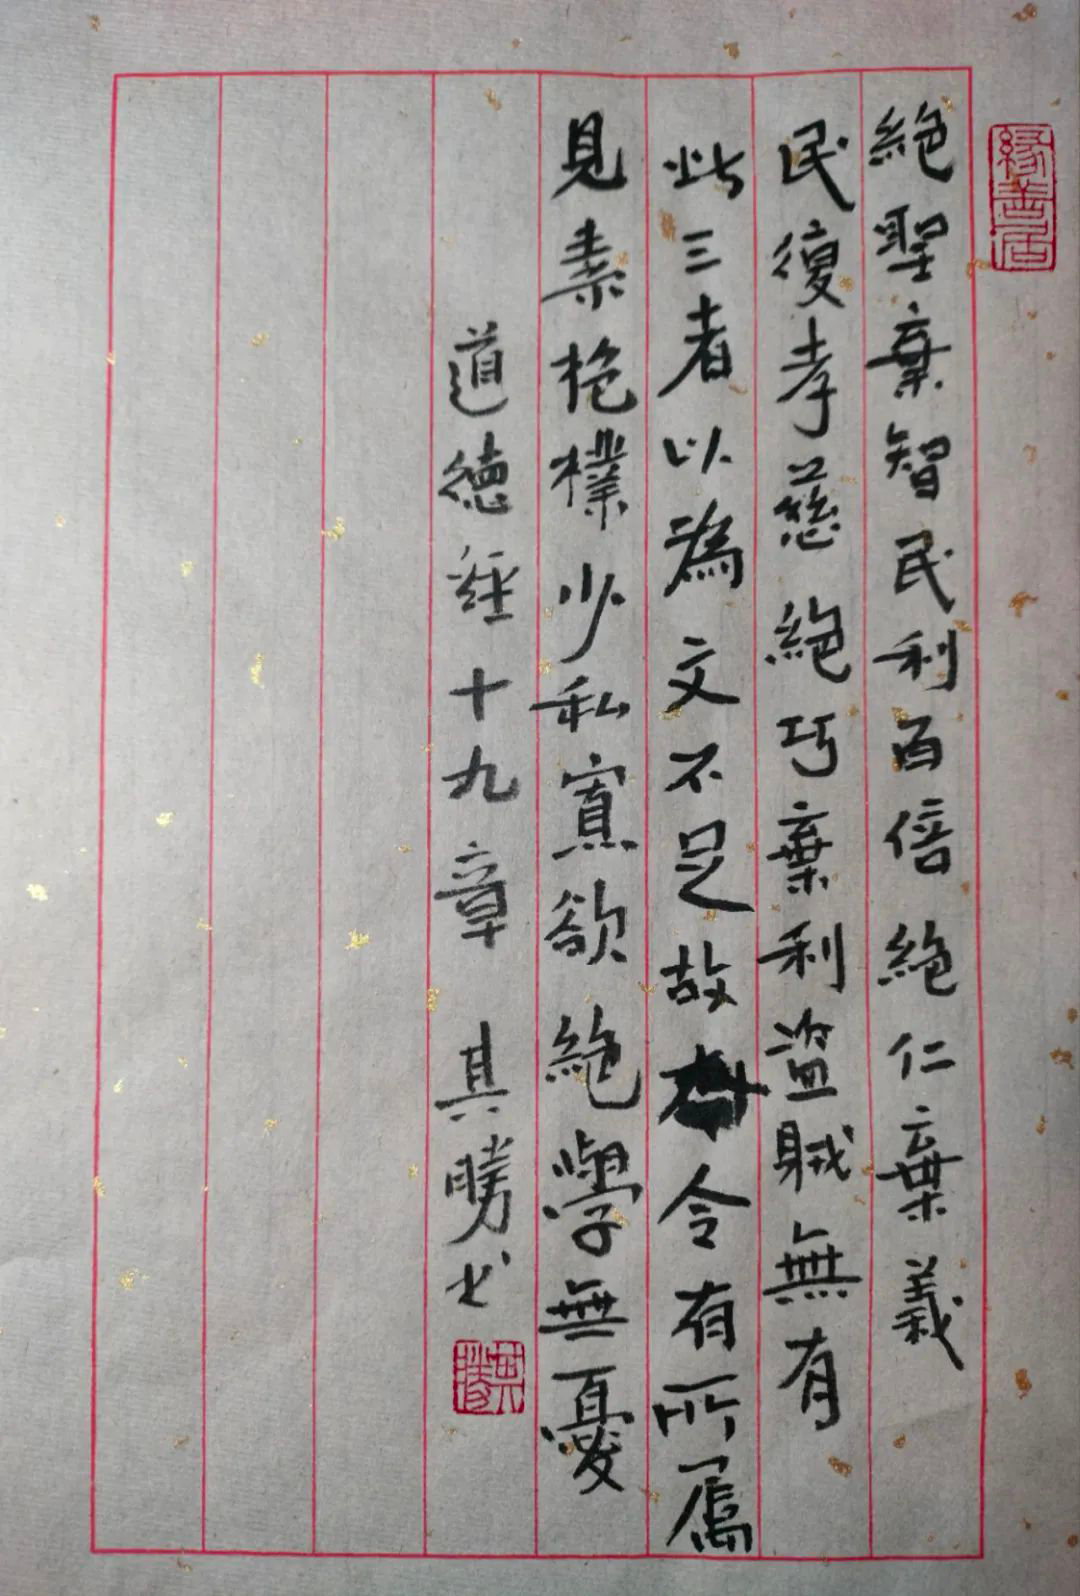 絕聖棄智民利百倍絕仁棄義
民復孝慈絕巧棄利盜賊無有
此三者以為文不足故令有所屬
見素抱樸少私寡欲絕學無憂
道德經十九章 其勝书
緣善居
其勝